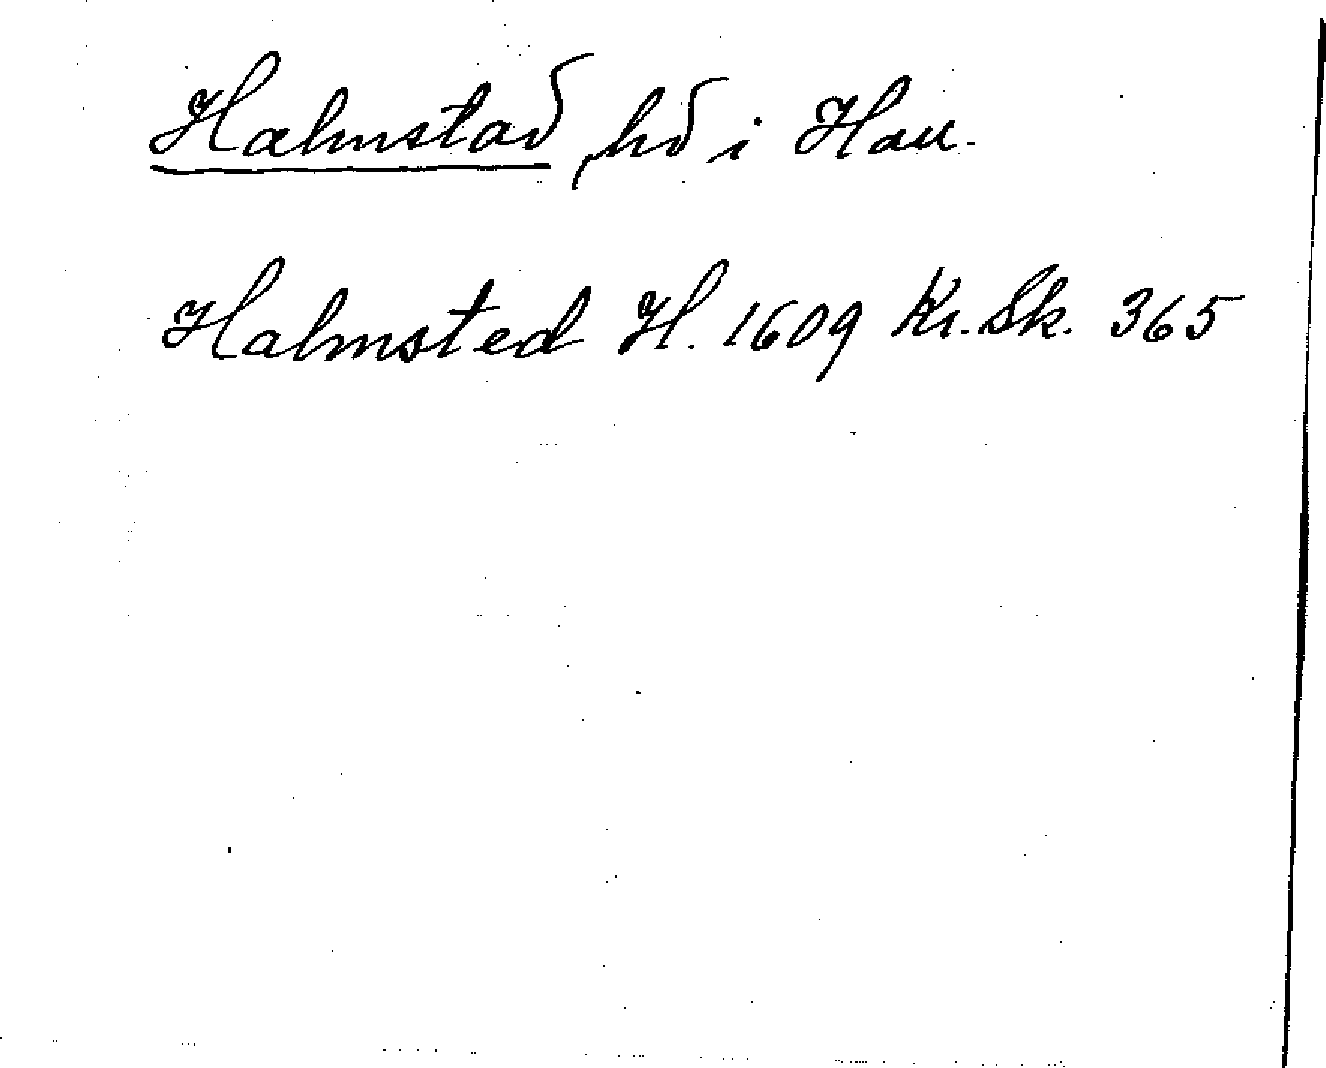 Halmstad, hd i Hall.
Halmsted H. 1609 Kr. Sk. 365